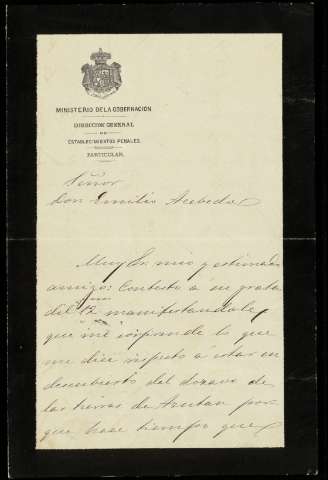 MINISTERIO DE LA GOBERNACION
DIRECCION GENERAL
DE
ESTABLECIMIENTOS PENALES.
PARTICULAR.
Señor
Don Emilio Acebedo
Muy Sr. mio y estimado
amigo: Contesto á su grata
del 12 manifestandole
que me sorprende lo que
me dice respeto á estar en
descubierto del dozavo de
las tierras de Azután por-
que hace tiempo que